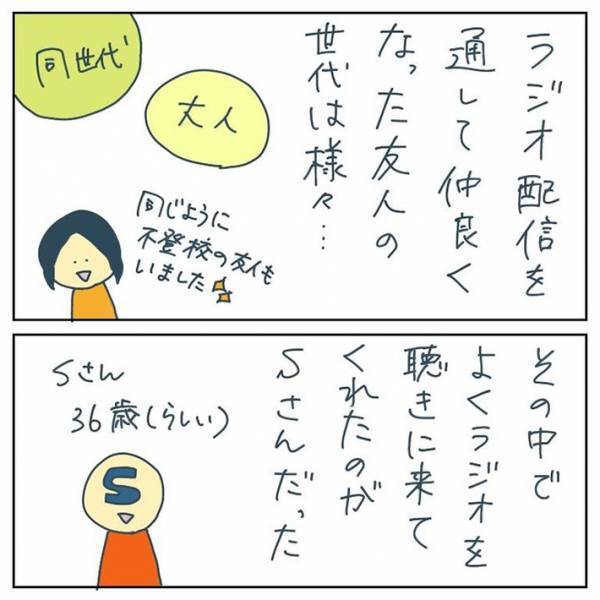 ラジオ配信を
通して仲良く
なった友人の
世代は様々…
同世代
大人
同じように
不登校の友人も
いました
その中で
よくラジオを
聴きに来て
くれたのが
Sさんだった
Sさん
36歳(らしい)
S